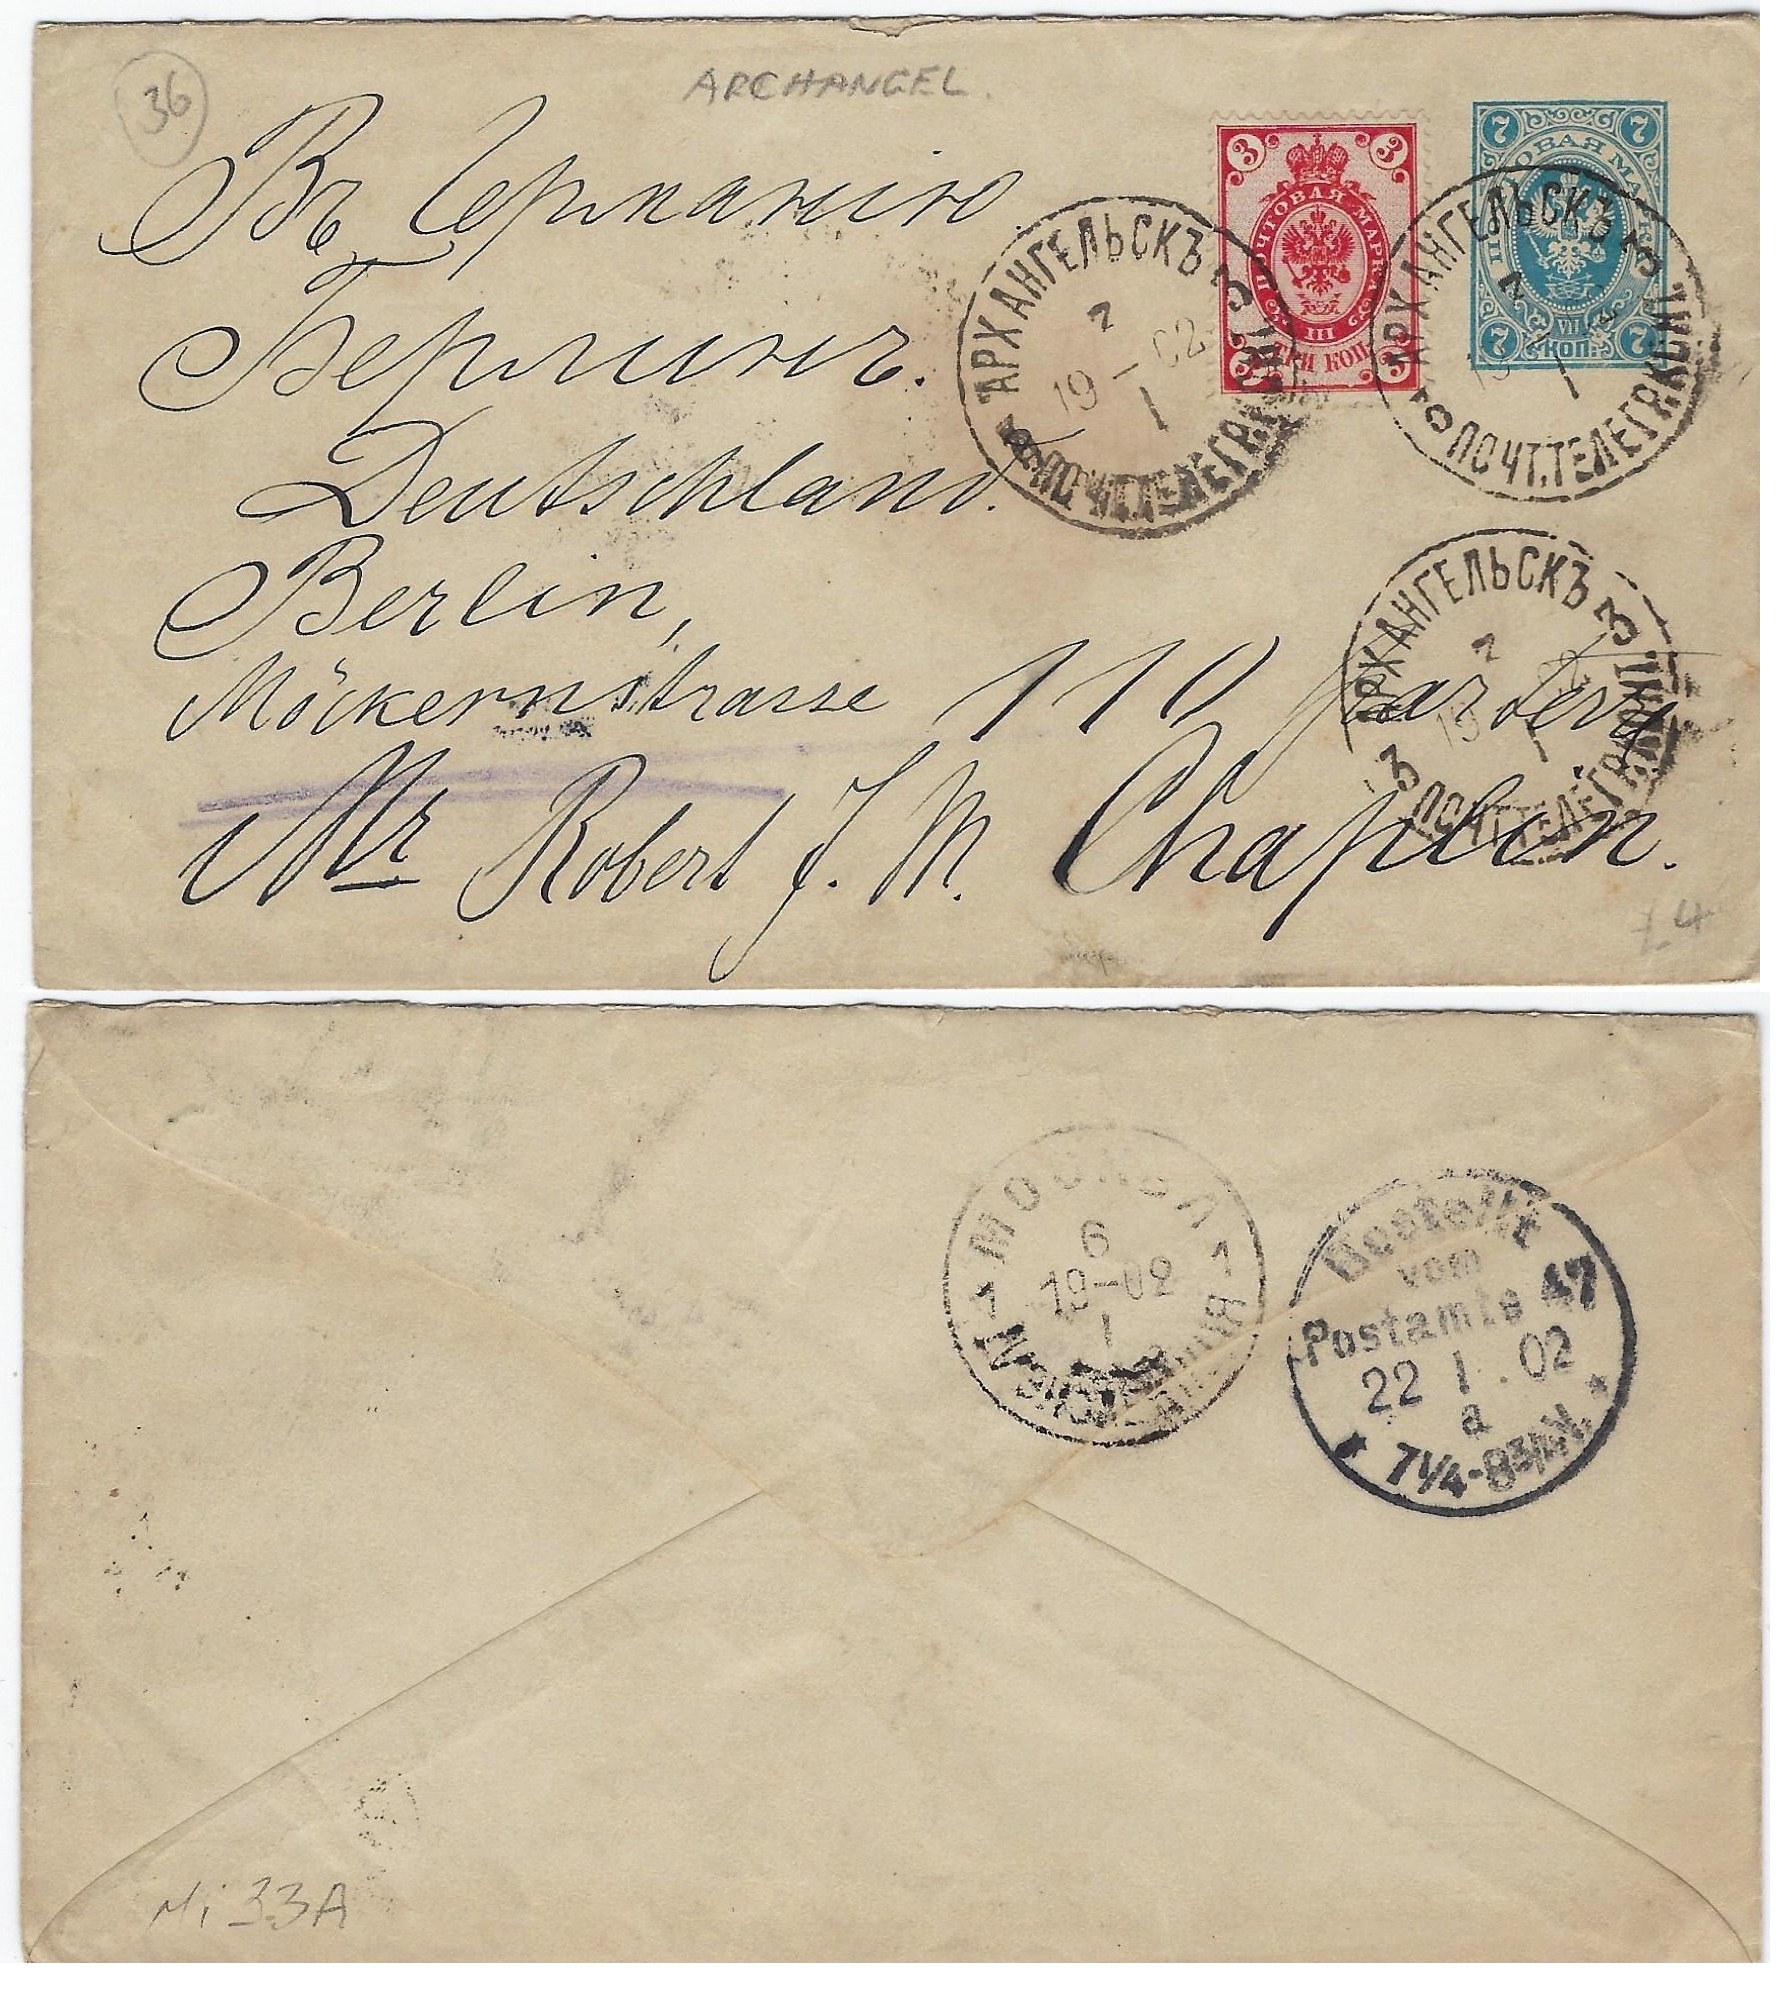 36
ARCHANGEL.
Въ Германію
Берлинъ.
Deutschland.
Berlin,
Möckernstrasse 110 parterre
Mr Robert J. M. Chaplin.
£4
3 3
ПОЧТОВАЯ МАРКА
III
ТРИ КОП.
3 3
7 7
ПОЧТОВАЯ МАРКА
VII
7 КОП. 7
АРХАНГЕЛЬСКЪ 3
2
19-02
1
ПОЧТ.ТЕЛЕГР.К.
АРХАНГЕЛЬСКЪ 3
2
1
3 ПОЧТ.ТЕЛЕГР.К.
АРХАНГЕЛЬСКЪ 3
2
19 02
1
3 ПОЧТ.ТЕЛЕГР.К.
МОСКВА
1 1
6
19-02
I
Bestellt
vom
Postamte 47
22 1. 02
a
* 7¼-8¾V. *
Mi 33A